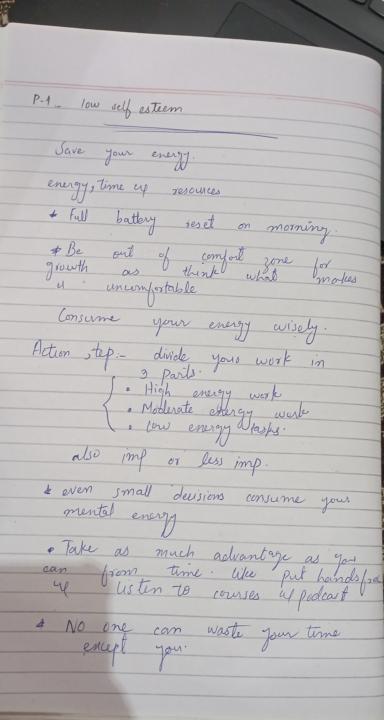 P-1 - low self esteem
Save your energy.
energy, time & resources
* Full battery reset on morning.
* Be out of comfort zone for
growth as think what makes
u uncomfortable
Consume your energy wisely.
Action step:- divide yours work in
3 parts.
• High energy work
• Moderate energy work
• low energy tasks.
also imp or less imp.
* even small decisions consume your
mental energy
• Take as much advantage as you
can from time. like put handsfree
& listen to courses & podcast
* No one can waste your time
except you.